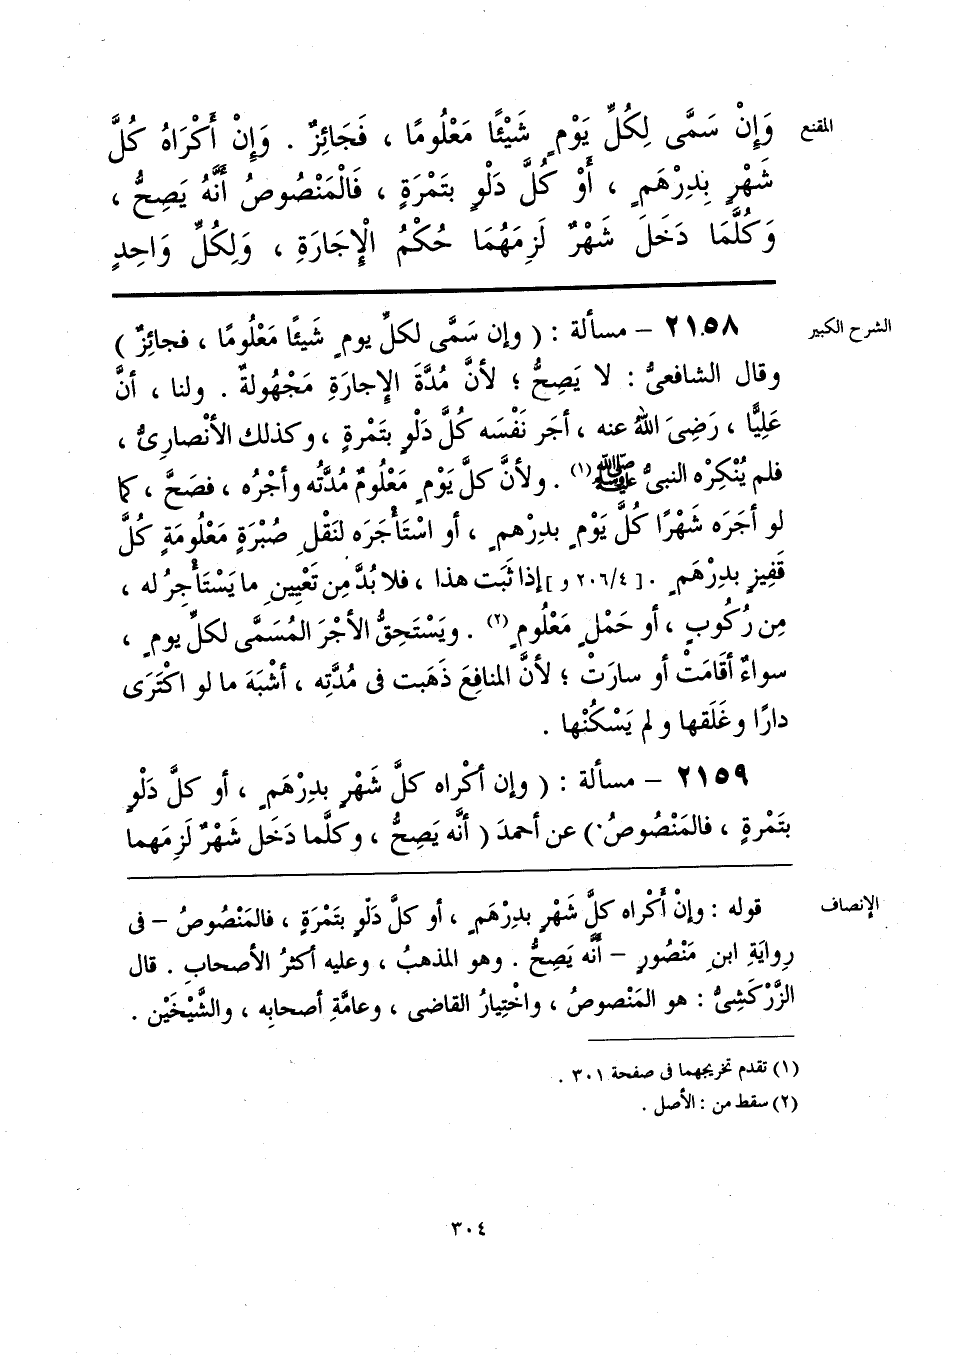 المقنع
وَإِنْ سَمَّى لِكُلِّ يَوْمٍ شَيْئًا مَعْلُومًا ، فَجَائِزٌ . وَإِنْ أَكْرَاهُ كُلَّ
شَهْرٍ بِدِرْهَمٍ ، أَوْ كُلَّ دَلْوٍ بِتَمْرَةٍ ، فَالْمَنْصُوصُ أَنَّهُ يَصِحُّ ،
وَكُلَّمَا دَخَلَ شَهْرٌ لَزِمَهُمَا حُكْمُ الْإِجَارَةِ ، وَلِكُلِّ وَاحِدٍ
الشرح الكبير
٢١٥٨ – مسألة : ( وإن سَمَّى لكلِّ يومٍ شَيئًا مَعْلُومًا ، فجائِزٌ )
وقال الشافعىُّ : لا يَصِحُّ ؛ لأنَّ مُدَّةَ الإِجارَةِ مَجْهُولةٌ . ولنا ، أنَّ
عَلِيًّا ، رَضِىَ اللهُ عنه ، أجَر نَفْسَه كُلَّ دَلْوٍ بتَمْرةٍ ، وكذلك الأنْصارِىُّ ،
فلم يُنْكِرْه النبىُّ ﷺ (١) . ولأنَّ كلَّ يَوْمٍ مَعْلُومٌ مُدَّتُه وأجْرُه ، فصَحَّ ، كما
لو أجَرَه شَهْرًا كُلَّ يَوْمٍ بدِرْهمٍ ، أو اسْتَأْجَرَه لنَقْلِ صُبْرَةٍ مَعْلُومَةٍ كُلَّ
قَفِيزٍ بدِرْهَمٍ . [ ٢٠٦/٤ و ] إذا ثَبَت هذا ، فلا بُدَّ مِن تَعْيِينِ ما يَسْتَأْجِرُ له ،
مِن رُكُوبٍ ، أو حَمْلٍ مَعْلُومٍ (٢) . ويَسْتَحِقُّ الأجْرَ المُسَمَّى لكلِّ يومٍ ،
سواءٌ أقَامَتْ أو سارَتْ ؛ لأنَّ المنافِعَ ذَهَبت فى مُدَّتِه ، أشْبَهَ ما لو اكْتَرَى
دارًا وغَلَقها ولم يَسْكُنْها .
٢١٥٩ – مسألة : ( وإن أكْراه كلَّ شَهْرٍ بدِرْهَمٍ ، أو كلَّ دَلْوٍ
بتَمْرةٍ ، فالمَنْصُوصُ ) عن أحمدَ ( أنَّه يَصِحُّ ، وكلَّما دَخَل شَهْرٌ لَزِمَهما
الإنصاف
قوله : وإنْ أَكْراه كلَّ شَهْرٍ بدِرْهَمٍ ، أو كلَّ دَلْوٍ بتَمْرَةٍ ، فالمَنْصُوصُ – فى
رِوايَةِ ابنِ مَنْصُورٍ – أنَّه يَصِحُّ . وهو المذهبُ ، وعليه أكثرُ الأصحابِ . قال
الزَّرْكَشِىُّ : هو المَنْصوصُ ، واخْتِيارُ القاضى ، وعامَّةِ أصحابِه ، والشَّيْخَيْن .
(١) تقدم تخريجهما فى صفحة ٣٠١ .
(٢) سقط من : الأصل .
٣٠٤